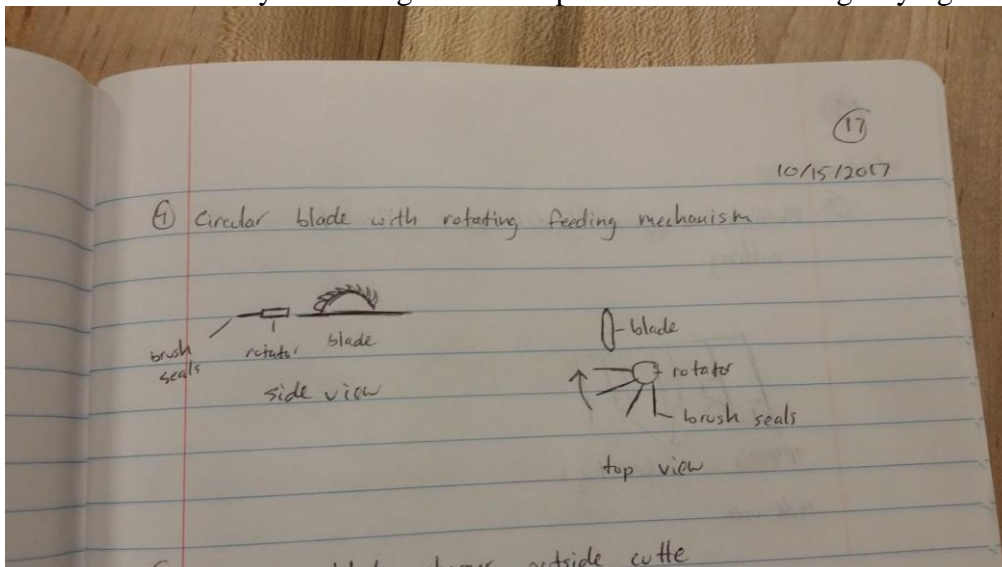 17
10/15/2017
Circular blade with rotating feeding mechanism
brush seals
rotator
blade
side view
blade
rotator
brush seals
top view
outside cutte